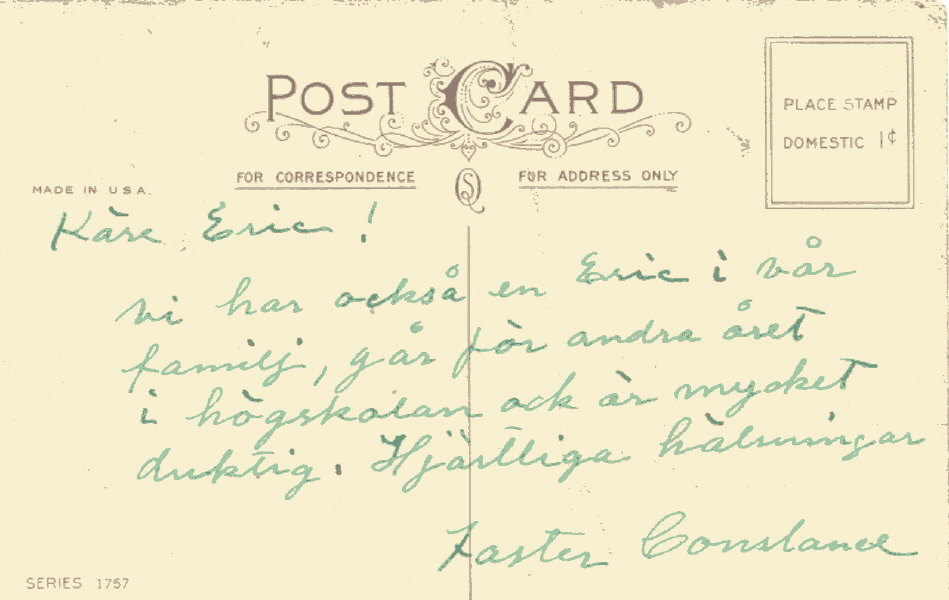 POST CARD
PLACE STAMP
DOMESTIC 1¢
FOR CORRESPONDENCE
FOR ADDRESS ONLY
MADE IN U.S.A.
Käre Eric!
vi har också en Eric i vår
familj, går för andra året
i högskolan ock är mycket
duktig. Hjärtliga hälsningar
Faster Constance
SERIES 1757